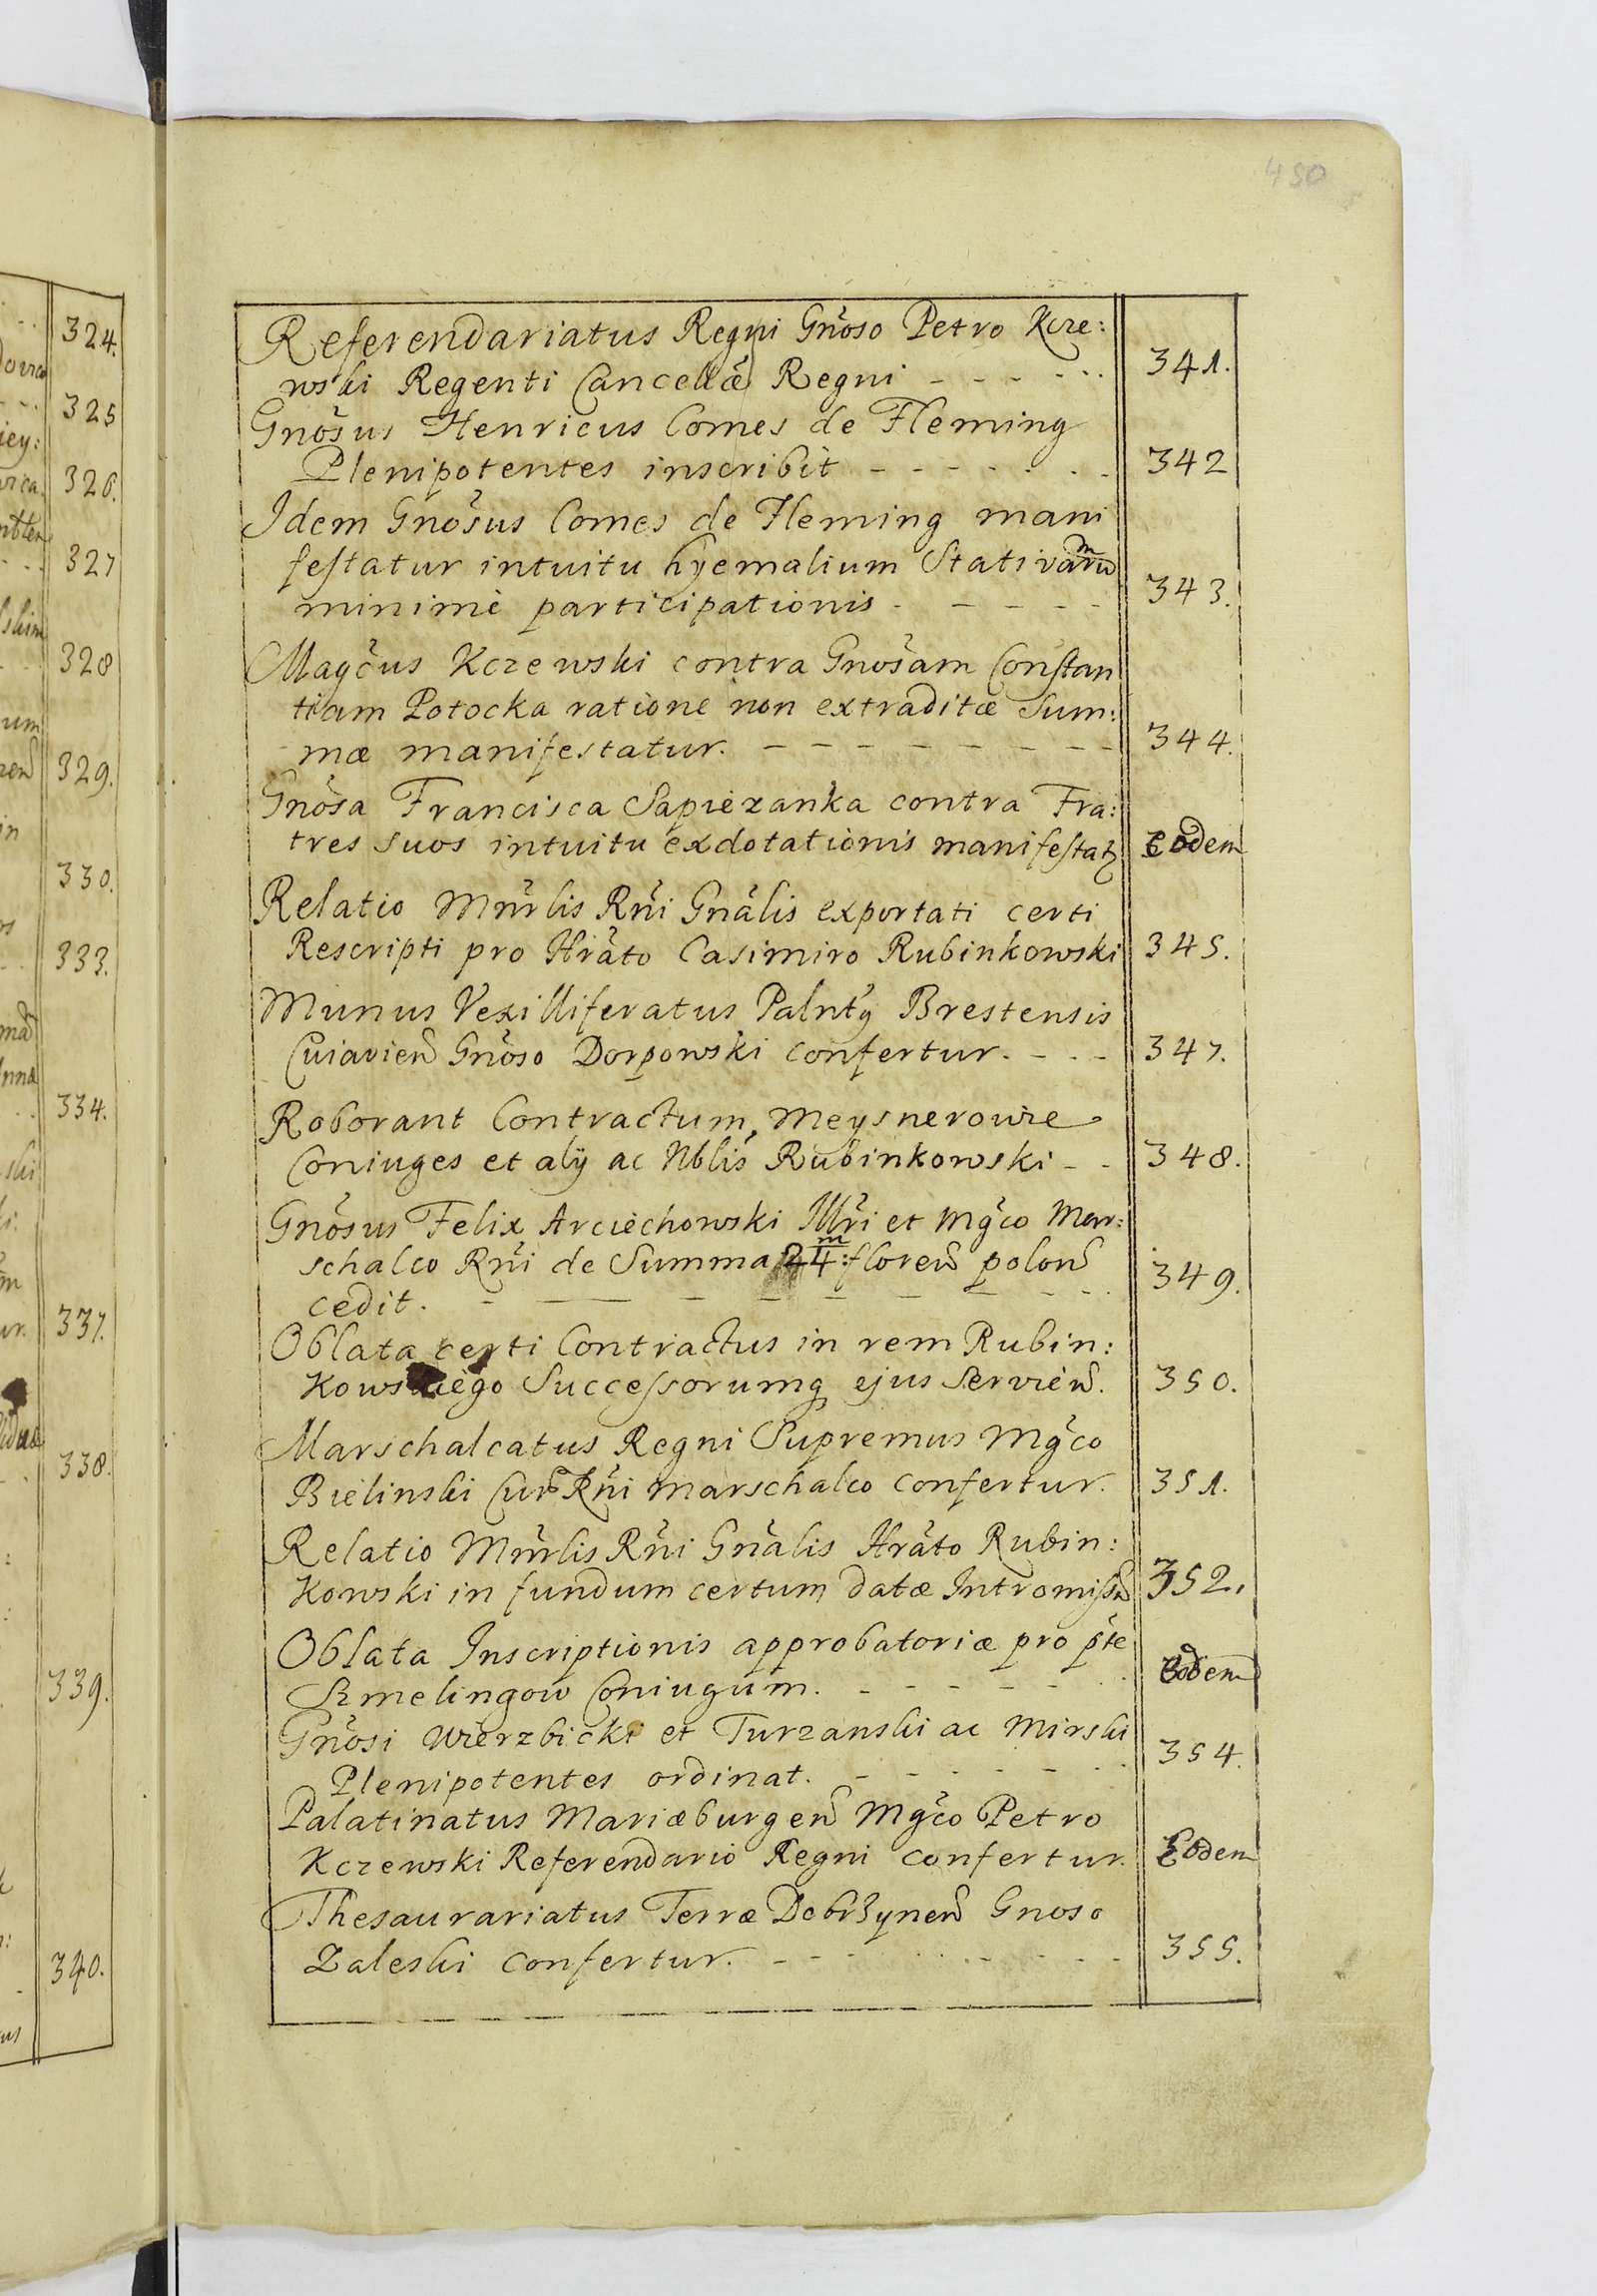 450
Referendariatus Regni Gnoso Petro Kcze:
wski Regenti Cancellæ Regni - - - - - - 341.
Gnosus Henricus Comes de Fleming
Plenipotentes inscribit - - - - - - - 342
Idem Gnosus Comes de Fleming mani
festatur intuitu hyemalium Stativarum
minimè participationis - - - - - 343.
Magcus Kczewski contra Gnosam Constan
tiam Potocka ratione non extraditæ Sum:
mæ manifestatur. - - - - - - - - - 344.
Gnosa Francisca Sapiezanka contra Fra:
tres suos intuitu exdotationis manifestatz Eodem
Relatio Mnrlis Rni Gnalis exportati certi
Rescripti pro Hrato Casimiro Rubinkowski 345.
Munus Vexilliferatus Palnty Brestensis
Cuiavien Gnoso Dorpowski confertur. - - - 347.
Roborant Contractum Meysnerowie
Coniuges et alij ac Nblis Rubinkowski - - 348.
Gnosus Felix Arciechowski Illri et Mgco Mar:
schalco Rni de Summa 24 m: floren polon
cedit. - - - - - - - - - 349.
Oblata certi Contractus in rem Rubin:
Kowskiego Successorumq ejus Servien. 350.
Marschalcatus Regni Supremus Mgco
Bielinski Cur Rni Marschalco confertur. 351.
Relatio Mnrlis Rni Gnalis Hrato Rubin:
Kowski in fundum certum datæ Intromissn 352.
Oblata Inscriptionis approbatoriæ pro pte
Szmelingow Coniugum. - - - - - - Eodem
Gnosi Wierzbicki et Turzanski ac Mirski
Plenipotentes ordinat. - - - - - - - 354.
Palatinatus Mariæburgen Mgco Petro
Kczewski Referendario Regni confertur. Eodem
Thesaurariatus Terræ Dobrzynen Gnoso
Zaleski confertur. - - - - - - - - - 355.
324.
325
326.
327
328
329.
330.
333.
334.
337.
338.
339.
340.